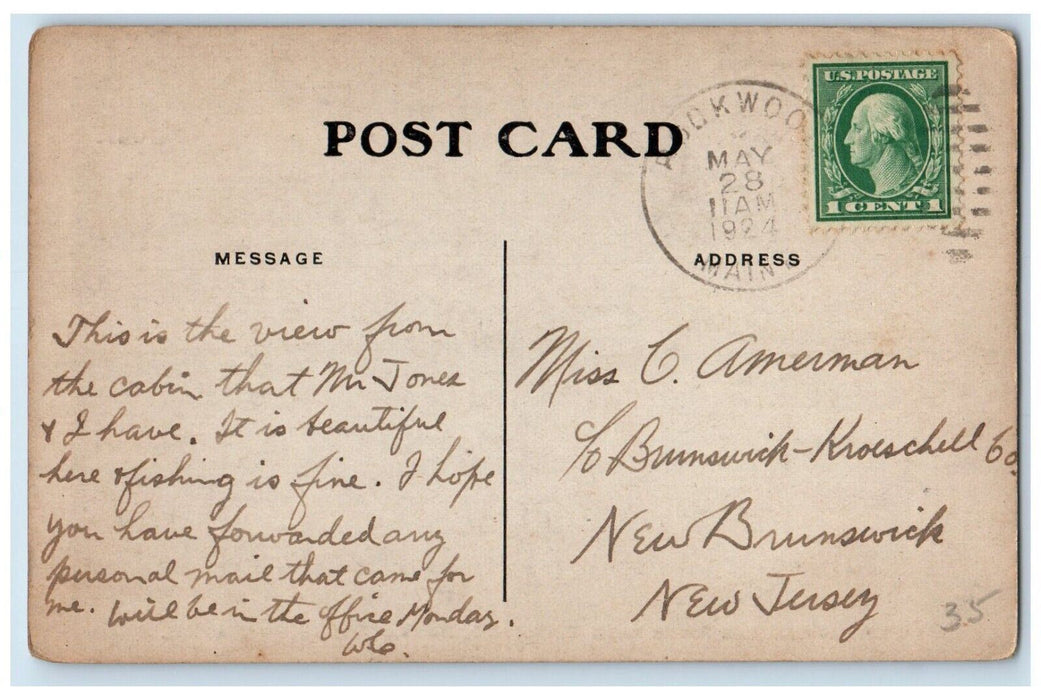 POST CARD
U.S. POSTAGE
1 CENT 1
OCKWOO
MAY
28
11 AM
1924
MAIN
MESSAGE
ADDRESS
This is the view from
the cabin that Mr Jones
& I have. It is beautiful
here & fishing is fine. I hope
you have forwarded any
personal mail that came for
me. Will be in the office Monday.
Miss C. Amerman
c/o Brunswick-Kroeschell Co.
New Brunswick
New Jersey
35